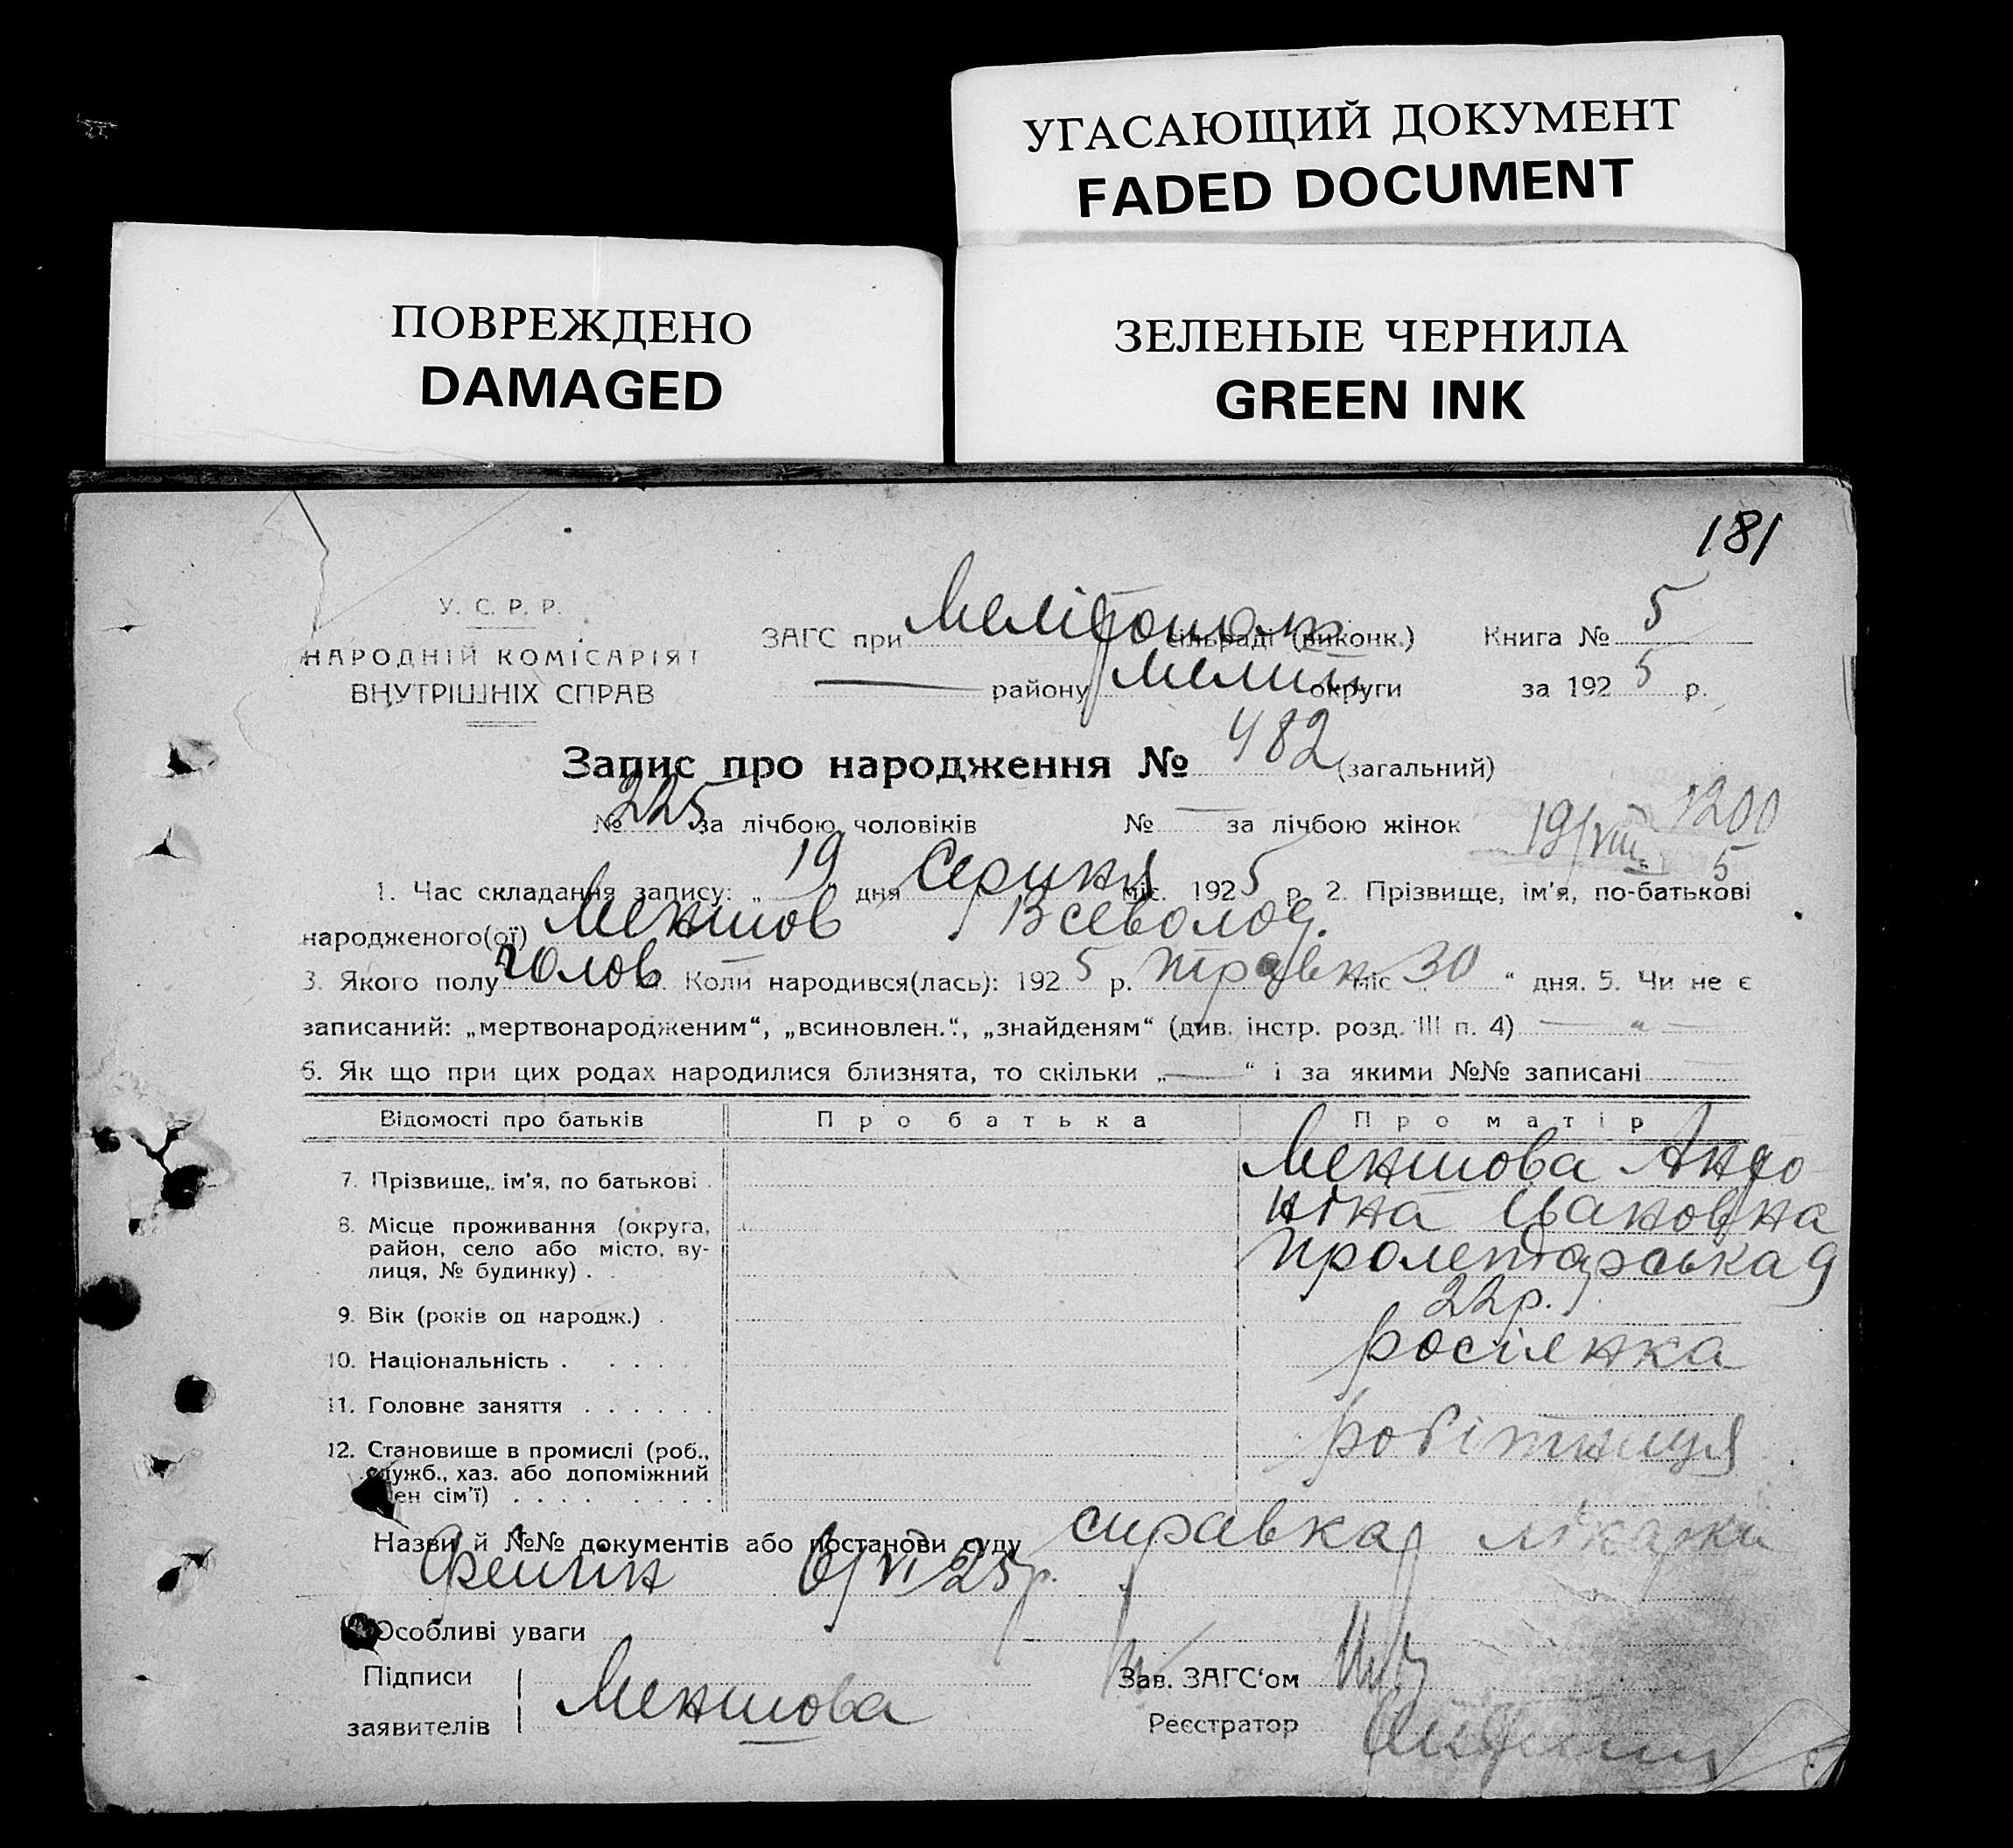 УГАСАЮЩИЙ ДОКУМЕНТ
FADED DOCUMENT
ПОВРЕЖДЕНО
DAMAGED
ЗЕЛЕНЫЕ ЧЕРНИЛА
GREEN INK
181
У. С. Р. Р.
НАРОДНІЙ КОМІСАРІЯТ
ВНУТРІШНІХ СПРАВ
ЗАГС при сільраді (виконк.) Книга № 5
— району округи за 1925 р.
Запис про народження № 482 (загальний)
№ 225 за лічбою чоловіків № — за лічбою жінок
19/VIII 5 1200
1. Час складання запису: „19" дня Серпня міс. 1925 р. 2. Прізвище, ім'я, по-батькові
народженого(ої) Меншов Всеволод.
3. Якого полу чолов Коли народився(лась): 1925 р. травн міс „30" дня. 5. Чи не є
записаний: „мертвонародженим", „всиновлен.", „знайденям" (див. інстр. розд. III п. 4) — „ —
6. Як що при цих родах народилися близнята, то скільки „—" і за якими №№ записані —
Відомості про батьків Про батька Про матір
7. Прізвище, ім'я, по батькові . Меншова Анто
ніна Івановна
8. Місце проживання (округа,
район, село або місто, ву-
лиця, № будинку) . Пролетарська 9
9. Вік (років од народж.) . 22 р.
10. Національність . . . . росіянка
11. Головне заняття . . . . . .
12. Становище в промислі (роб., робітниця
служб., хаз. або допоміжний
член сім'ї) . . . . . . . . .
Назви й №№ документів або постанови суду справка лікарки
6/VI 25 р.
Особливі уваги
Підписи
заявителів Меншова
Зав. ЗАГС'ом
Реєстратор